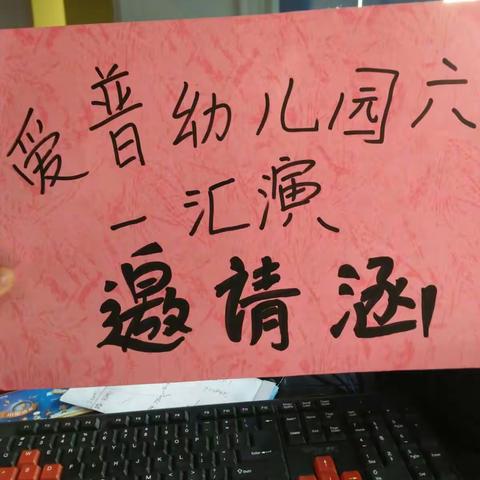 爱普幼儿园六
一汇演
邀请涵